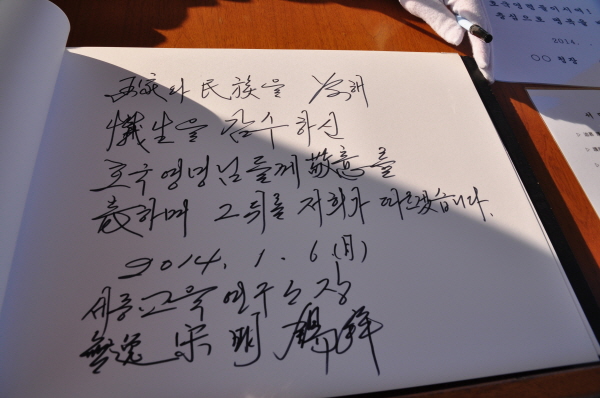 호국영령들이시여!
충심으로 명복을
2014.
○○ 청장
國家와 民族을 위해
犧生을 감수하신
호국영령님들께 敬意를
表하며 그 뒤를 저희가 따르겠습니다.
2014. 1. 6 (月)
세종교육연구소장
宋 明